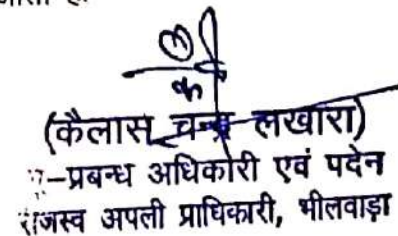 (कैलास चन्द्र लखारा)
-प्रबन्ध अधिकारी एवं पदेन
राजस्व अपली प्राधिकारी, भीलवाड़ा